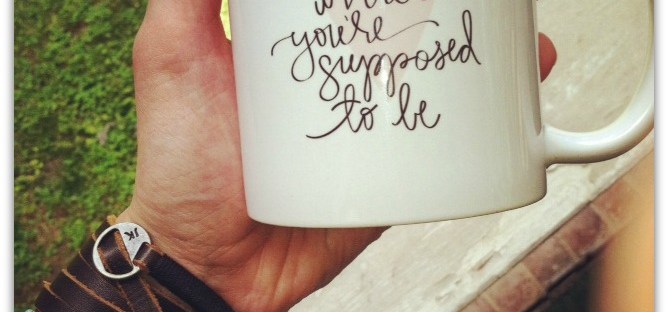 you're
supposed
to be
JK